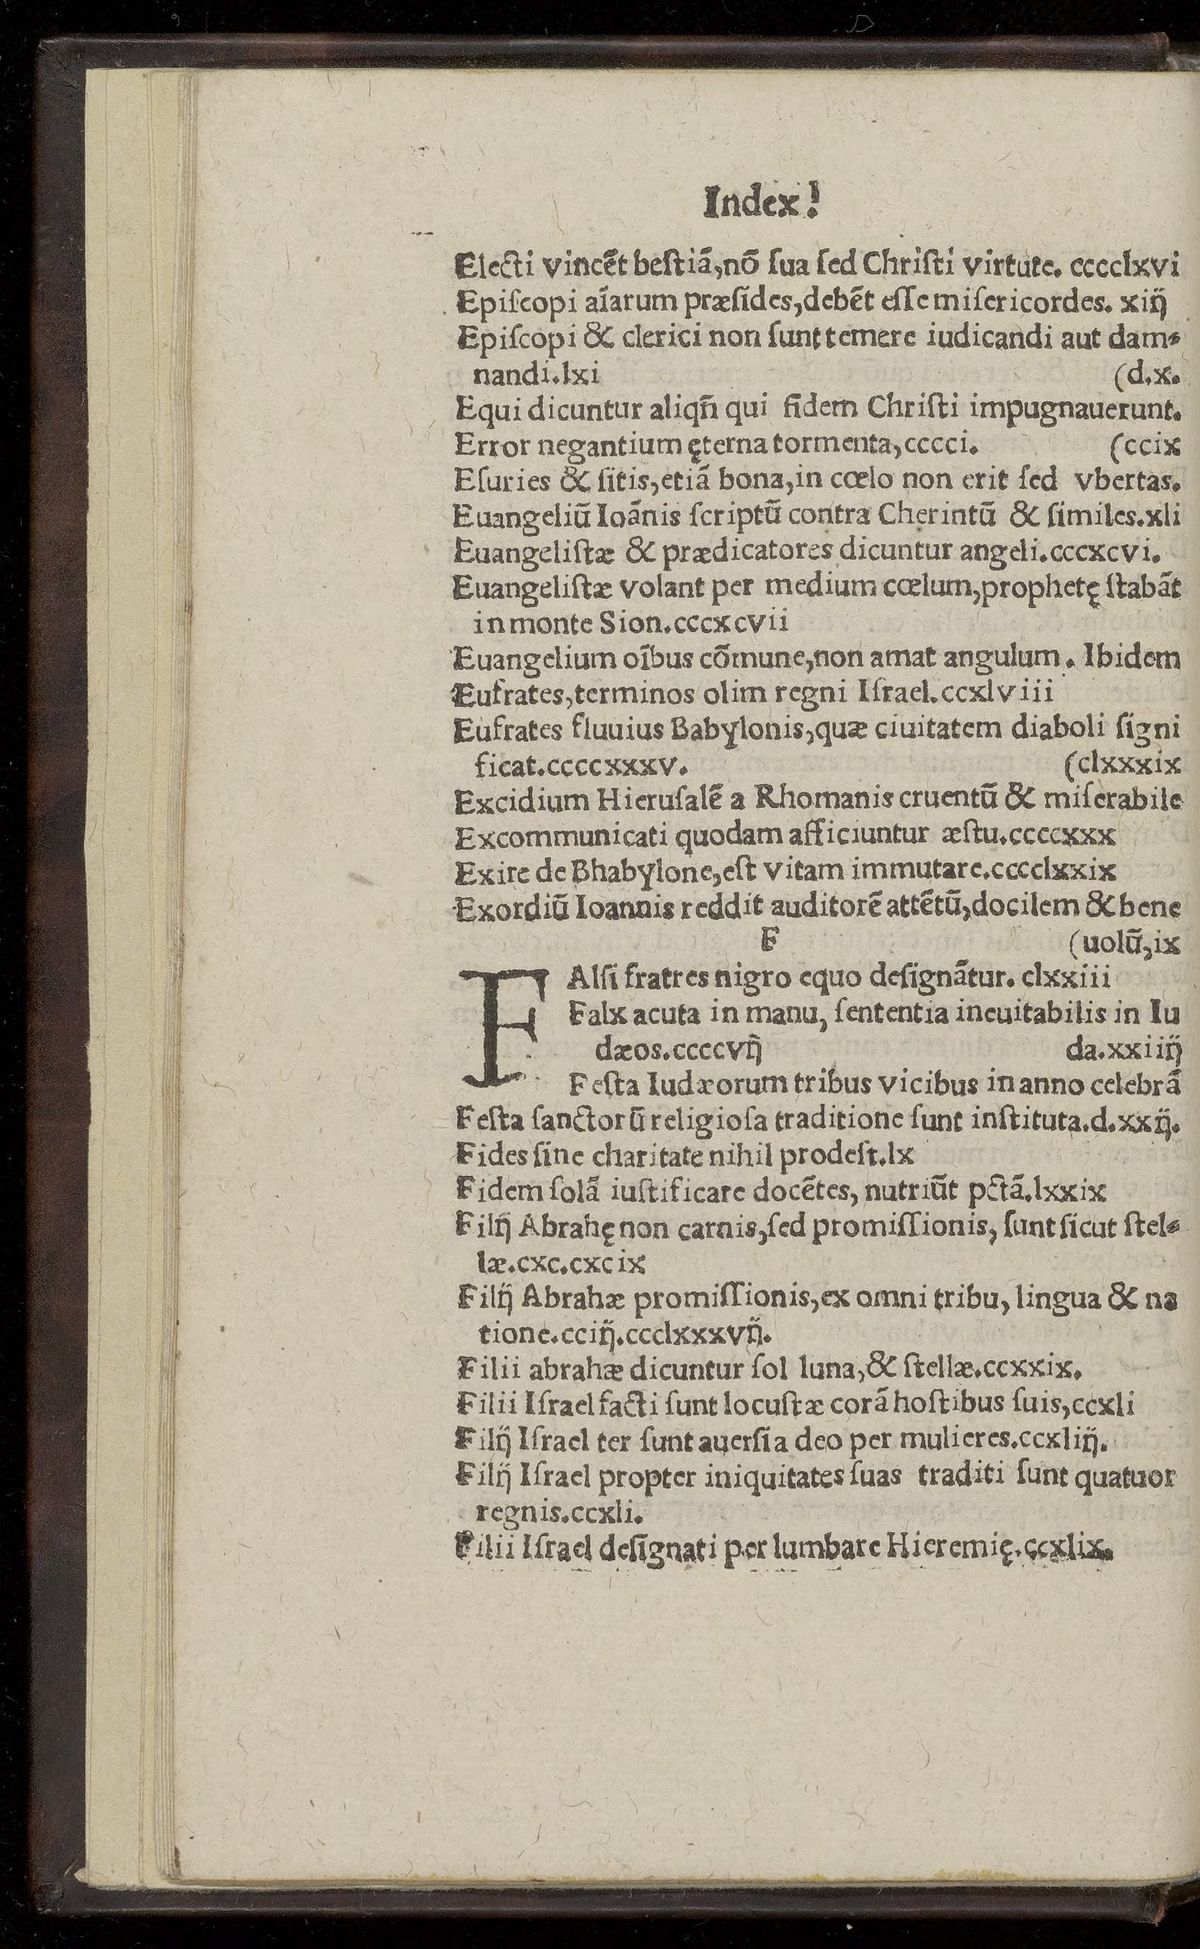 Index!
Electi vincẽt beſtiã,nõ ſua ſed Chriſti virtute. cccclxvi
Epiſcopi aĩarum præſides,debẽt eſſe miſericordes. xiij
Epiſcopi & clerici non ſunt temere iudicandi aut dam-
nandi.lxi (d.x.
Equi dicuntur aliqñ qui fidem Chriſti impugnauerunt.
Error negantium ęterna tormenta,cccci. (ccix
Eſuries & ſitis,etiã bona,in cœlo non erit ſed vbertas.
Euangeliũ Ioãnis ſcriptũ contra Cherintũ & ſimiles.xli
Euangeliſtæ & prædicatores dicuntur angeli.cccxcvi.
Euangeliſtæ volant per medium cœlum,prophetę ſtabãt
in monte Sion.cccxcvii
Euangelium oĩbus cõmune,non amat angulum. Ibidem
Eufrates,terminos olim regni Iſrael.ccxlviii
Eufrates fluuius Babylonis,quæ ciuitatem diaboli ſigni
ficat.ccccxxxv. (clxxxix
Excidium Hieruſalẽ a Rhomanis cruentũ & miſerabile
Excommunicati quodam afficiuntur æſtu.ccccxxx
Exire de Bhabylone,eſt vitam immutare.cccclxxix
Exordiũ Ioannis reddit auditorẽ attẽtũ,docilem & bene
F (uolũ,ix
FAlſi fratres nigro equo deſignãtur. clxxiii
Falx acuta in manu, ſententia ineuitabilis in Iu
dæos.ccccvij da.xxiiij
Feſta Iudæorum tribus vicibus in anno celebrã
Feſta ſanctorũ religioſa traditione ſunt inſtituta.d.xxij.
Fides ſine charitate nihil prodeſt.lx
Fidem ſolã iuſtificare docẽtes, nutriũt pctã.lxxix
Filij Abrahę non carnis,ſed promiſſionis, ſunt ſicut ſtel-
læ.cxc.cxcix
Filij Abrahæ promiſſionis,ex omni tribu, lingua & na
tione.cciij.ccclxxxvij.
Filii abrahæ dicuntur ſol luna,& ſtellæ.ccxxix.
Filii Iſrael facti ſunt locuſtæ corã hoſtibus ſuis,ccxli
Filij Iſrael ter ſunt auerſi a deo per mulieres.ccxliij.
Filij Iſrael propter iniquitates ſuas traditi ſunt quatuor
regnis.ccxli.
Filii Iſrael deſignati per lumbare Hieremię.ccxlix.